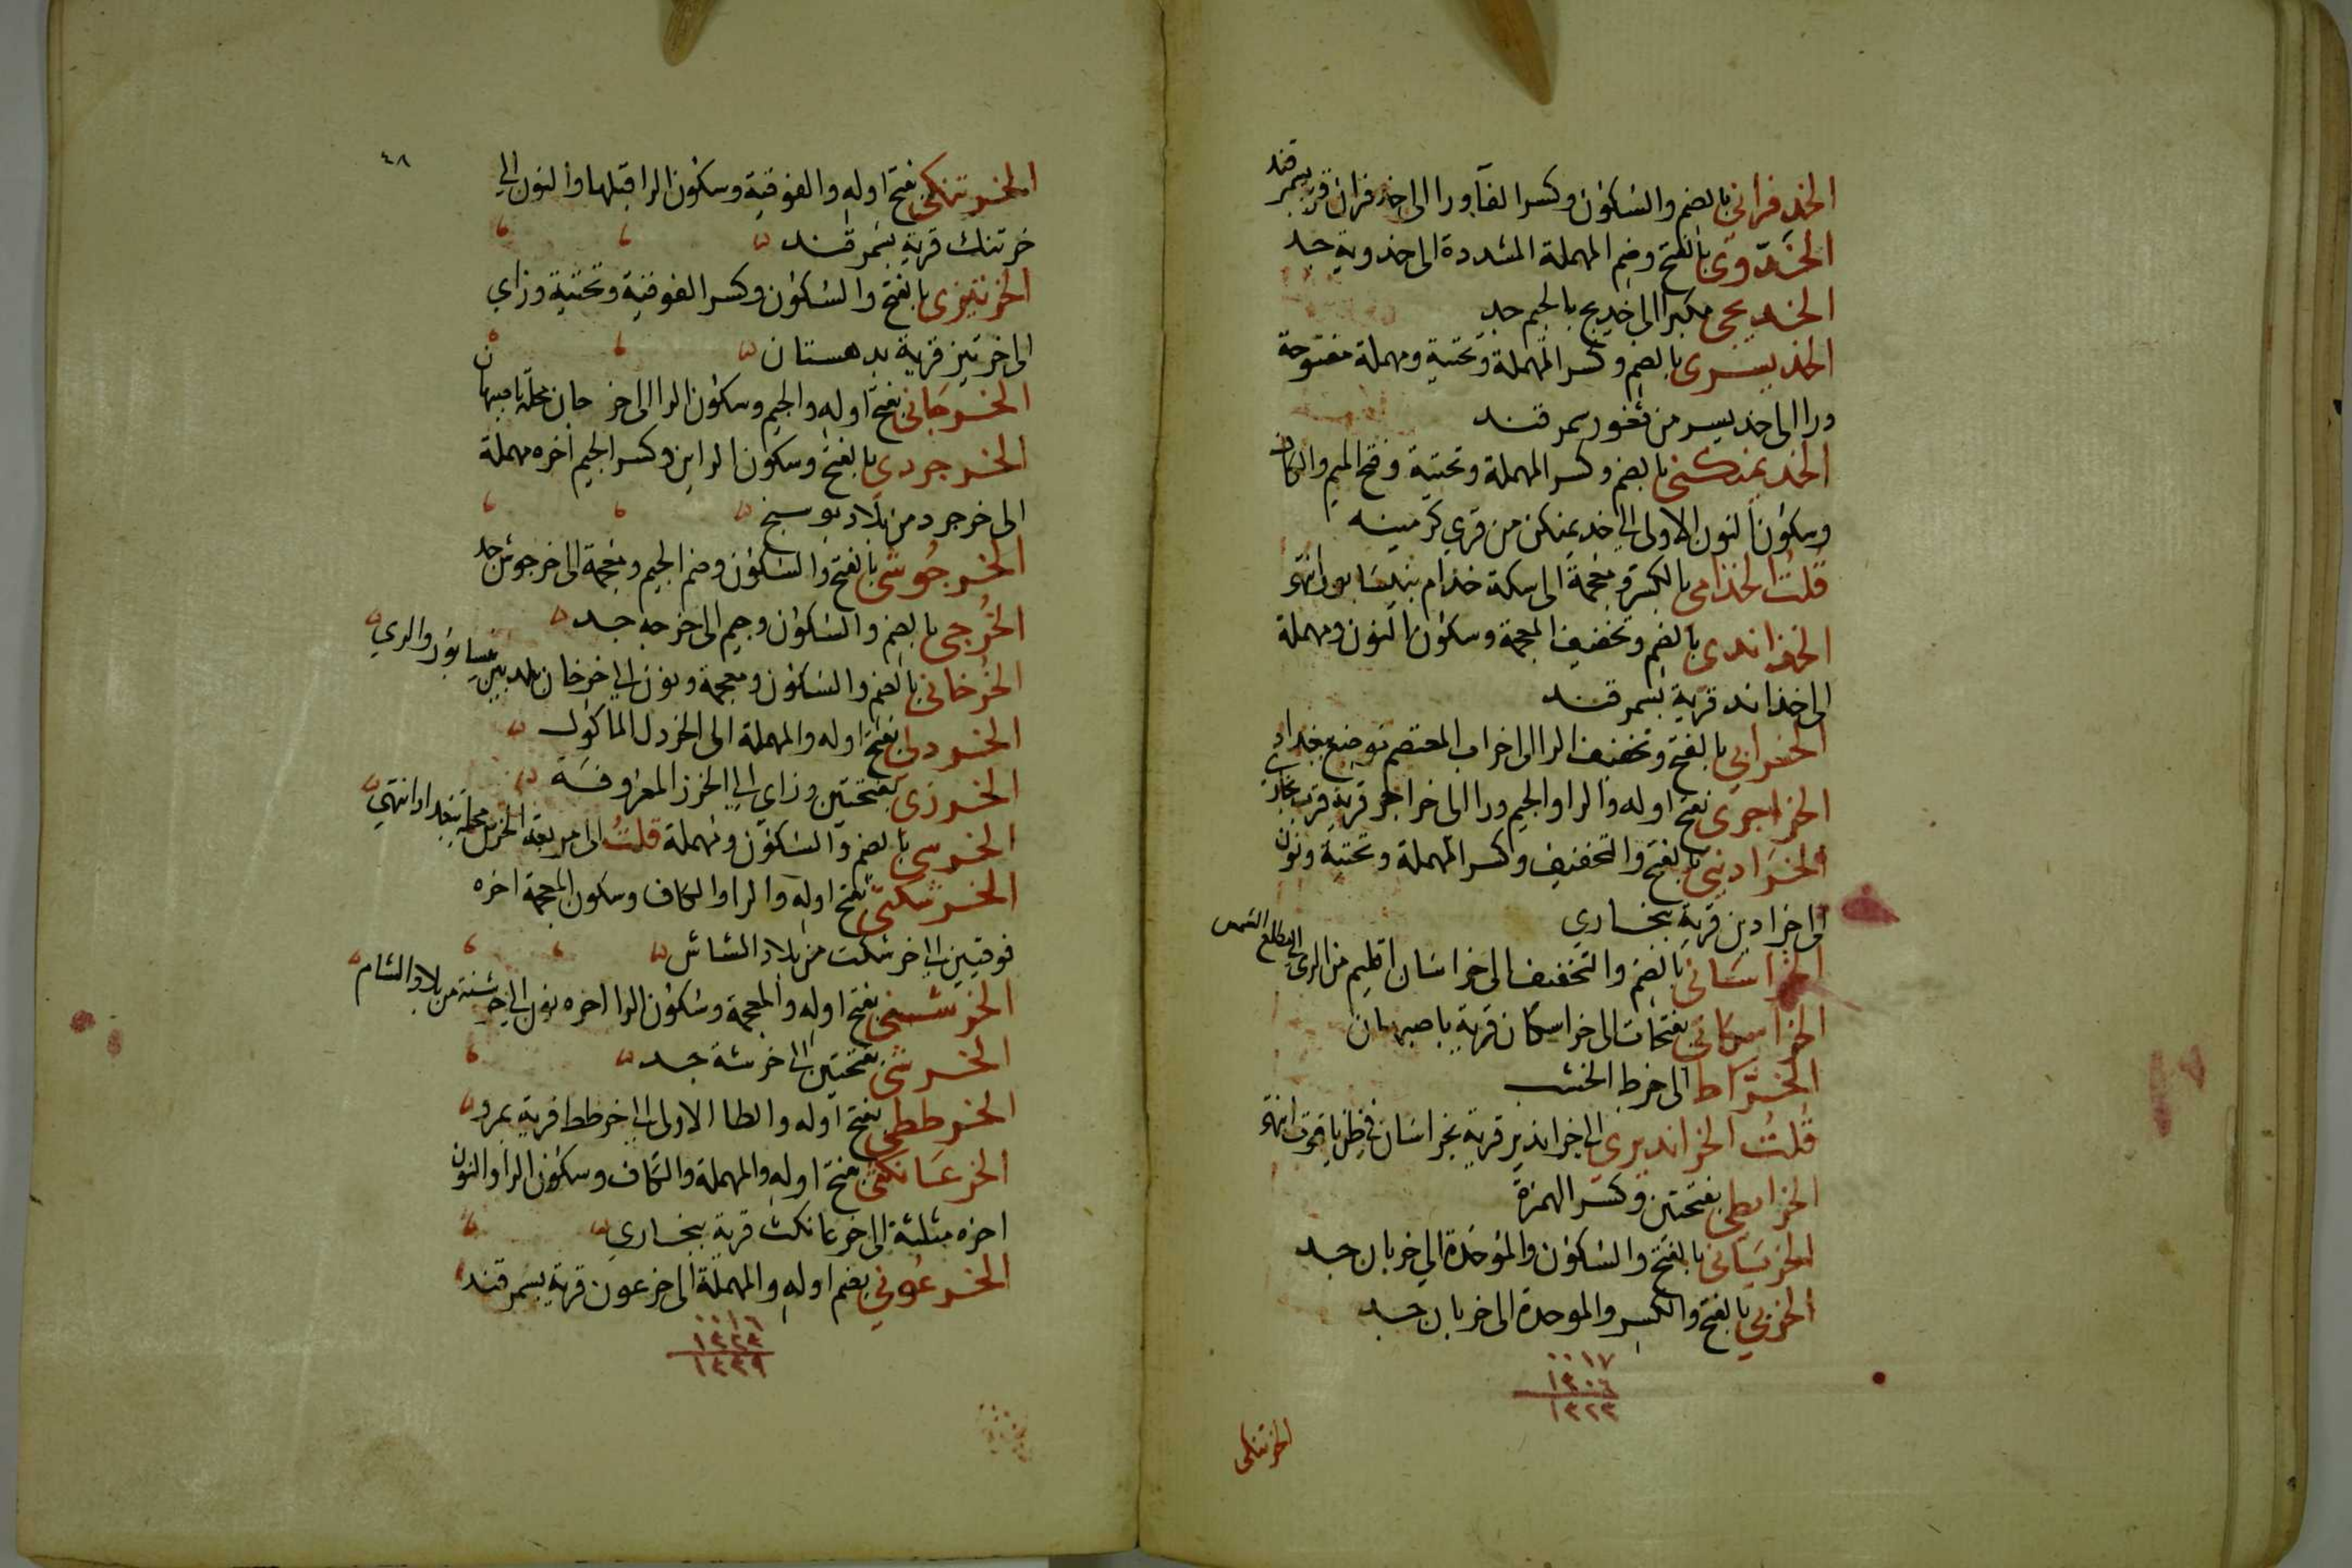 الخدفرانى بالضم والسكون وكسر الفآ ورا الى خدفران قرية بسمرقند
الخدّوى بالفتح وضم المهملة المشددة الى خدوية جد
الخديجى مكبرا الى خديج بالجيم جد
الخديسرى بالضم وكسر المهملة وتحتية ومهملة مفتوحة
ورا الى خديسر من ثغور سمرقند
الخديمنكنى بالضم وكسر المهملة وتحتية وفتح الميم والكاف
وسكون النون الاولى الى خديمنكن من قرى كرمينه
قلتُ الخذامى بالكسر ومعجمة الى سكة خذام بنيسابور انتهى
الخذاندى بالضم وتخفيف المعجمة وسكون النون ومهملة
الى خذاند قرية بسمرقند
الخرابى بالفتح وتخفيف الرا الى خراب المعتصم موضع ببغداد
الخراجرى بفتح اوله والرا والجيم ورا الى خراجر قرية قرب بخارى
الخرادينى بالفتح والتخفيف وكسر المهملة وتحتية ونون
الى خرادين قرية ببخارى
الخراسانى بالضم والتخفيف الى خراسان اقليم من الرى الى مطلع الشمس
الخراسكانى بفتحات الى خراسكان قرية باصبهان
الخرّاط الى خرط الخشب
قلتُ الخرانديرى الى خراندير قرية بخراسان فى ظن ياقوت انتهى
الخرايطى بفتحتين وكسر الهمزة
الخربانى بالفتح والسكون والموحدة الى خربان جد
الخربى بالفتح والكسر والموحدة الى خربان جد
٠٠١٧
١٣٠٦
١٣٢٣
الخرتنكى
٤٨
الخرتنكى بفتح اوله والفوقية وسكون الرا قبلها والنون الى
خرتنك قرية بسمرقند
الخرتيزى بالفتح والسكون وكسر الفوقية وتحتية وزاى
الى خرتيز قرية بدهستان
الخرجانى بفتح اوله والجيم وسكون الرا الى خرجان محلة باصبهان
الخرجردى بالفتح وسكون الراين وكسر الجيم اخره مهملة
الى خرجرد من بلاد بوسنج
الخرجوشى بالفتح والسكون وضم الجيم ومعجمة الى خرجوش جد
الخُرجى بالضم والسكون وجيم الى خرجه جد
الخرخانى بالضم والسكون ومعجمة ونون الى خرخان بلد بين نيسابور والرى
الخردلى بفتح اوله والمهملة الى الخردل الماكول
الخرزى بفتحتين وزاى الى الخرز المعروفة
الخرسى بالضم والسكون ومهملة قلتُ الى مربعة الخرس محلة ببغداد انتهى
الخرشكتى بفتح اوله والرا والكاف وسكون المعجمة اخره
فوقيتين الى خرشكت من بلاد الشاش
الخرشنى بفتح اوله والمعجمة وسكون الرا اخره نون الى خرشنة من بلاد الشام
الخرشى بفتحتين الى خرشة جد
الخرططى بفتح اوله والطا الاولى الى خرطط قرية بمرو
الخرعانكثى بفتح اوله والمهملة والكاف وسكون الرا والنون
اخره مثلثة الى خرعانكث قرية ببخارى
الخرعونى بضم اوله والمهملة الى خرعون قرية بسمرقند
٠٠١٦
١٣٢٣
١٣٣٩